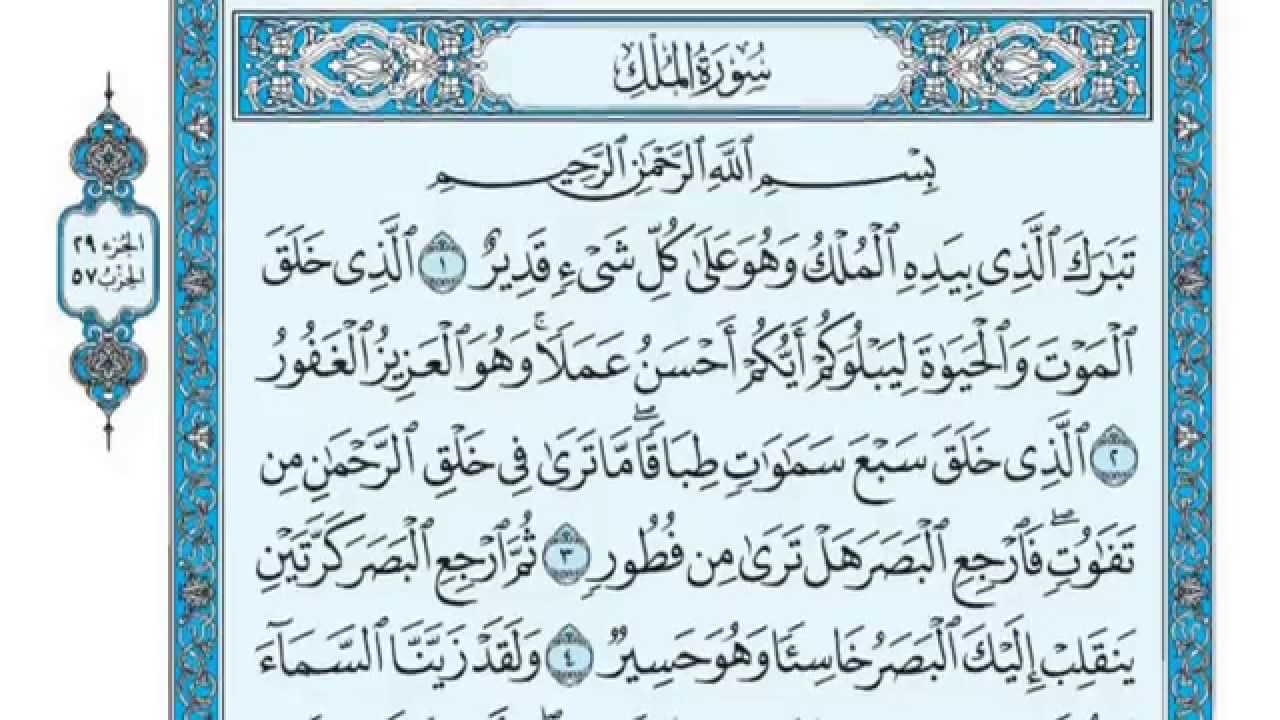 سُورَةُ الْمُلْكِ
بِسْمِ ٱللَّهِ ٱلرَّحْمَٰنِ ٱلرَّحِيمِ
الجُزء ٢٩
الحِزْبُ ٥٧
تَبَٰرَكَ ٱلَّذِى بِيَدِهِ ٱلْمُلْكُ وَهُوَ عَلَىٰ كُلِّ شَىْءٍ قَدِيرٌ ١ ٱلَّذِى خَلَقَ
ٱلْمَوْتَ وَٱلْحَيَوٰةَ لِيَبْلُوَكُمْ أَيُّكُمْ أَحْسَنُ عَمَلًا ۚ وَهُوَ ٱلْعَزِيزُ ٱلْغَفُورُ
٢ ٱلَّذِى خَلَقَ سَبْعَ سَمَٰوَٰتٍ طِبَاقًا ۖ مَّا تَرَىٰ فِى خَلْقِ ٱلرَّحْمَٰنِ مِن
تَفَٰوُتٍ ۖ فَٱرْجِعِ ٱلْبَصَرَ هَلْ تَرَىٰ مِن فُطُورٍ ٣ ثُمَّ ٱرْجِعِ ٱلْبَصَرَ كَرَّتَيْنِ
يَنقَلِبْ إِلَيْكَ ٱلْبَصَرُ خَاسِئًا وَهُوَ حَسِيرٌ ٤ وَلَقَدْ زَيَّنَّا ٱلسَّمَآءَ